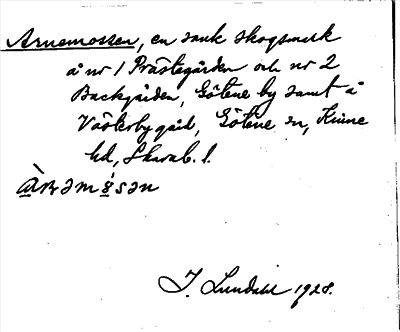 Arnemossen, en sank skogsmark
å nr 1 Prästegården och nr 2
Backgården, Götene by samt å
Västerbygård, Götene sn, Kinne
hd, Skarab. l.
I. Lundahl 1928.